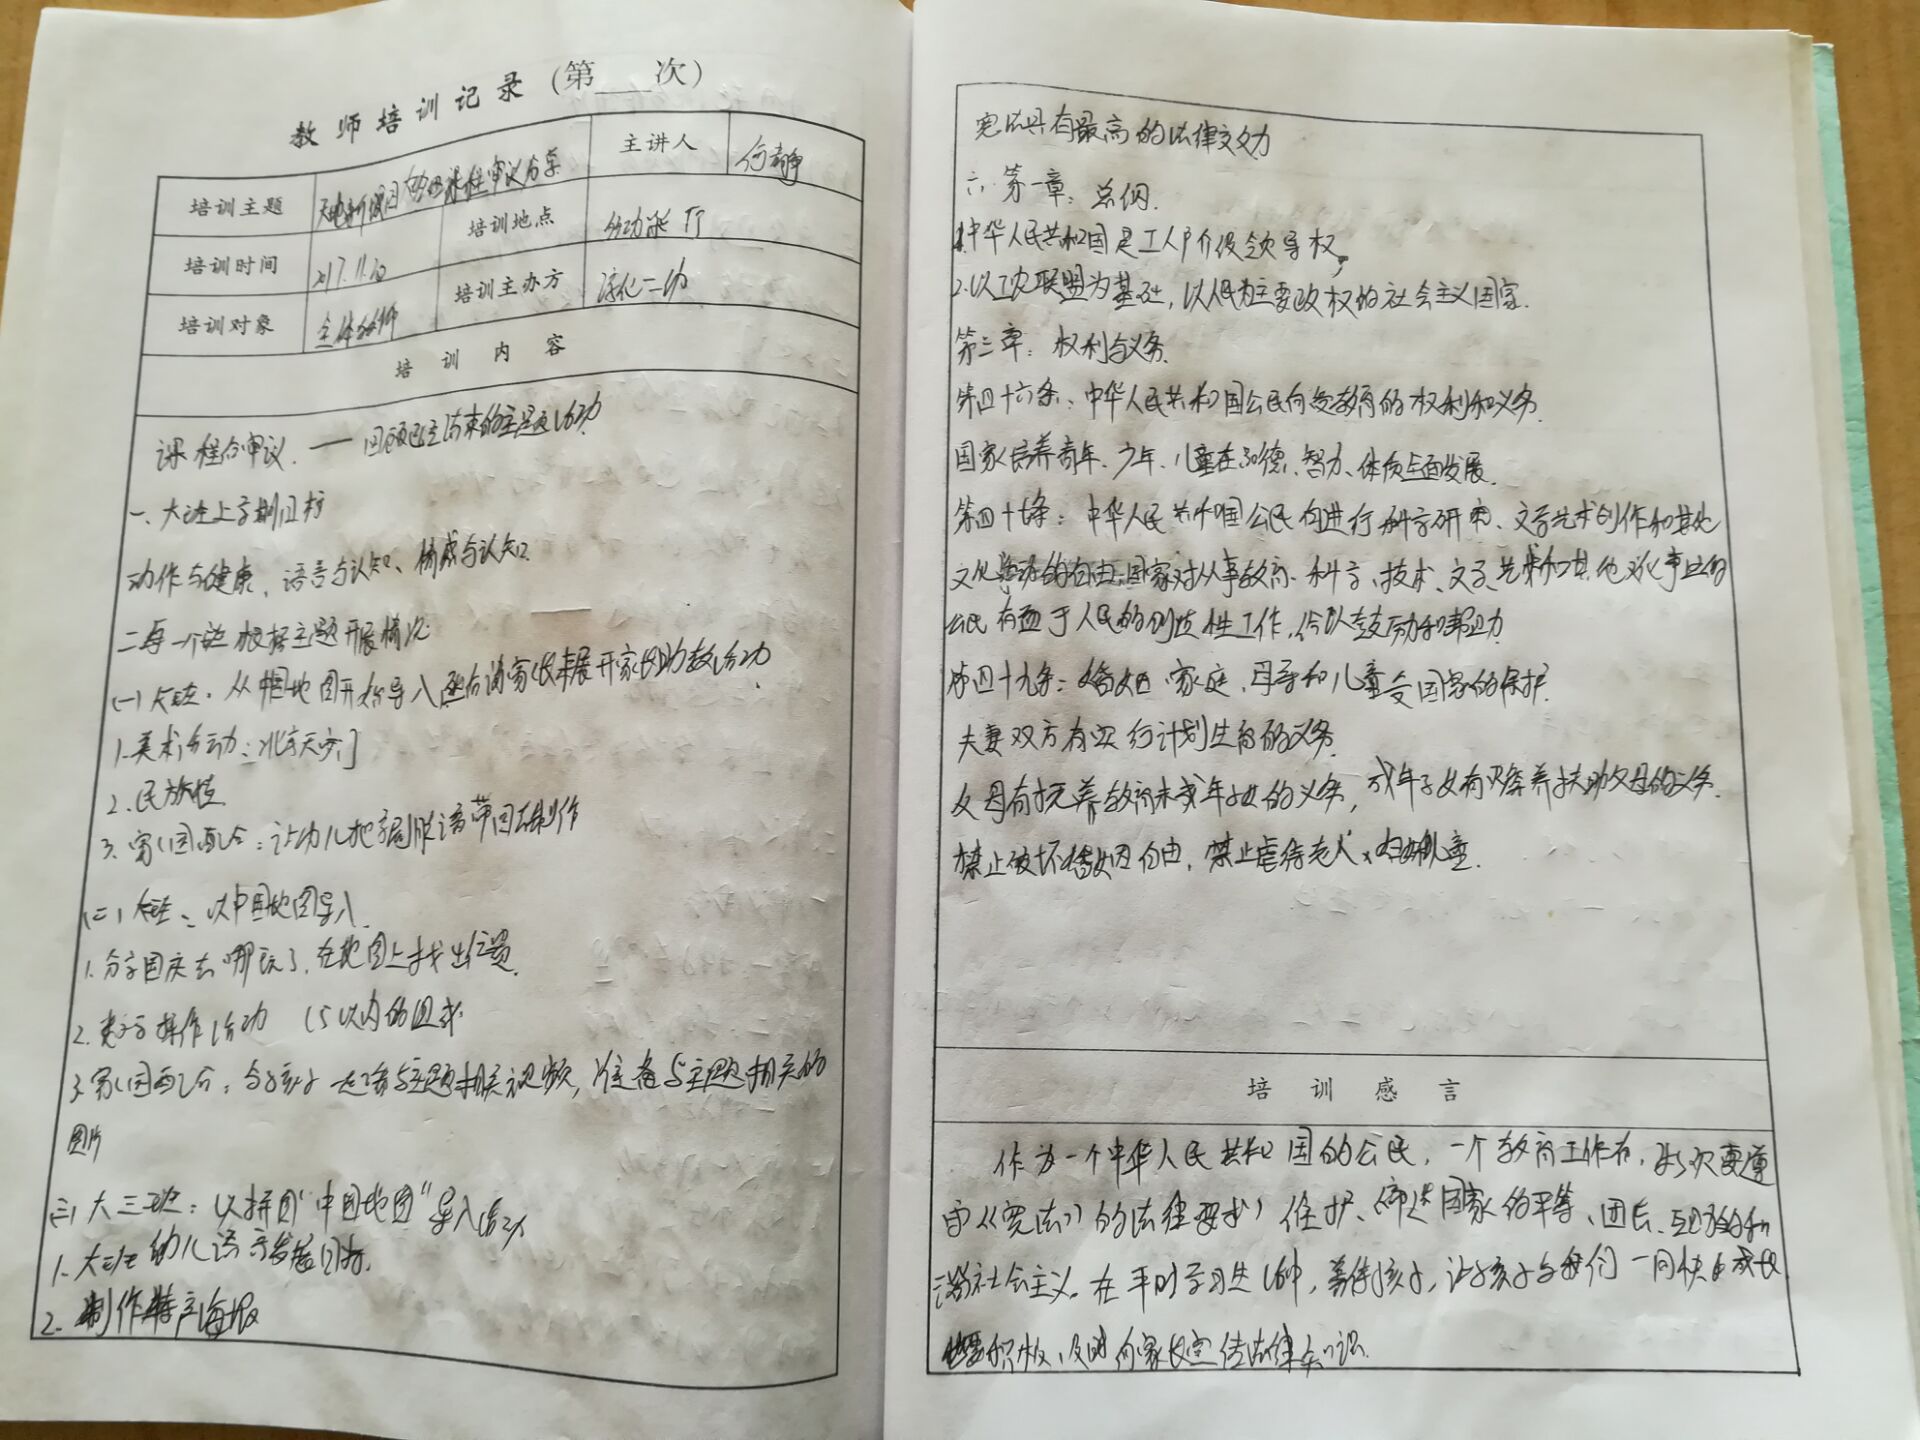 教师培训记录（第___次）
培训主题
主讲人 何静
培训时间 2017.11.20 培训地点 活动展厅
培训对象 全体教师 培训主办方 淳化二幼
培训内容
课程的审议. — 回顾已经结束的主题活动
一、大班上学期目标
动作与健康、语言与认知、情感与认知
二、每一个班根据主题开展情况
(一)大班. 从中国地图开始导入 开展家长助教活动
1.美术活动：北京天安门
2.民族娃
3.家园配合：让幼儿把 服 带回 制作
(二)大 班、以中国地图导入.
1.分享国庆去哪玩了，在地图上找出位置.
2.数学操作活动 (5以内的
3.家园配合：与孩子一起 与主题相关视频，准备与主题相关的
图片
(三)大三班：以拼图“中国地图”导入活动
1.大班幼儿语言发展目标.
2.制作特产海报
宪法具有最高的法律效力
六. 第一章：总纲.
1.中华人民共和国是工人阶级领导权，
2.以工农联盟为基础，以人民民主 政权的社会主义国家.
第三章：权利与义务.
第四十六条：中华人民共和国公民有受教育的权利和义务.
国家培养青年、少年、儿童在品德、智力、体质全面发展.
第四十七条：中华人民共和国公民有进行科学研究、文学艺术创作和其他
文化活动的自由，国家对从事教育、科学、技术、文学、艺术和其他文化事业的
公民有益于人民的创造性工作，给以鼓励和帮助.
第四十九条：婚姻、家庭、母亲和儿童受国家的保护.
夫妻双方有实行计划生育的义务.
父母有抚养教育未成年子女的义务，成年子女有赡养扶助父母的义务.
禁止破坏婚姻自由，禁止虐待老人、妇女和儿童.
培训感言
作为一个中华人民共和国的公民，一个教育工作者， 要遵
守《宪法》的法律要求，维护、促进国家的平等、团结、互助的和
谐社会主义。在平时学习生活中，善待孩子，让孩子与我们一同快乐成长
积极、及时向家长宣传法律知识.